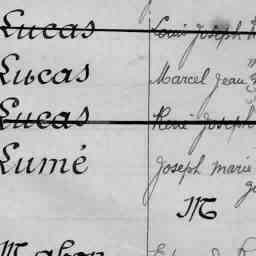 Lucas Louis Joseph
Lucas Marcel Jean
Lucas René Joseph
Lumé Joseph marie
M